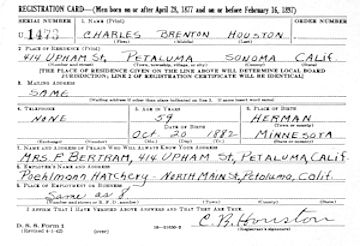 REGISTRATION CARD—(Men born on or after April 28, 1877 and on or before February 16, 1897)
SERIAL NUMBER 1. NAME (Print) ORDER NUMBER
U 1473 CHARLES BRENTON HOUSTON
(First) (Middle) (Last)
2. PLACE OF RESIDENCE (Print)
414 UPHAM St, PETALUMA SONOMA CALIF.
(Number and street) (Town, township, village, or city) (County) (State)
[THE PLACE OF RESIDENCE GIVEN ON THE LINE ABOVE WILL DETERMINE LOCAL BOARD
JURISDICTION; LINE 2 OF REGISTRATION CERTIFICATE WILL BE IDENTICAL]
3. MAILING ADDRESS
SAME
[Mailing address if other than place indicated on line 2. If same insert word same]
4. TELEPHONE 5. AGE IN YEARS 6. PLACE OF BIRTH
NONE 59 HERMAN
DATE OF BIRTH (Town or county)
OCT 20 1882 MINNESOTA
(Exchange) (Number) (Mo.) (Day) (Yr.) (State or country)
7. NAME AND ADDRESS OF PERSON WHO WILL ALWAYS KNOW YOUR ADDRESS
MRS. F. BERTRAM, 414 UPHAM St, PETALUMA, CALIF.
8. EMPLOYER'S NAME AND ADDRESS
Poehlmann HATCHERY - NORTH MAIN St, Petaluma, Calif.
9. PLACE OF EMPLOYMENT OR BUSINESS
Same as 8
(Number and street or R. F. D. number) (Town) (County) (State)
I AFFIRM THAT I HAVE VERIFIED ABOVE ANSWERS AND THAT THEY ARE TRUE.
D. S. S. Form 1
(Revised 4-1-42) (over)
C. B. Houston